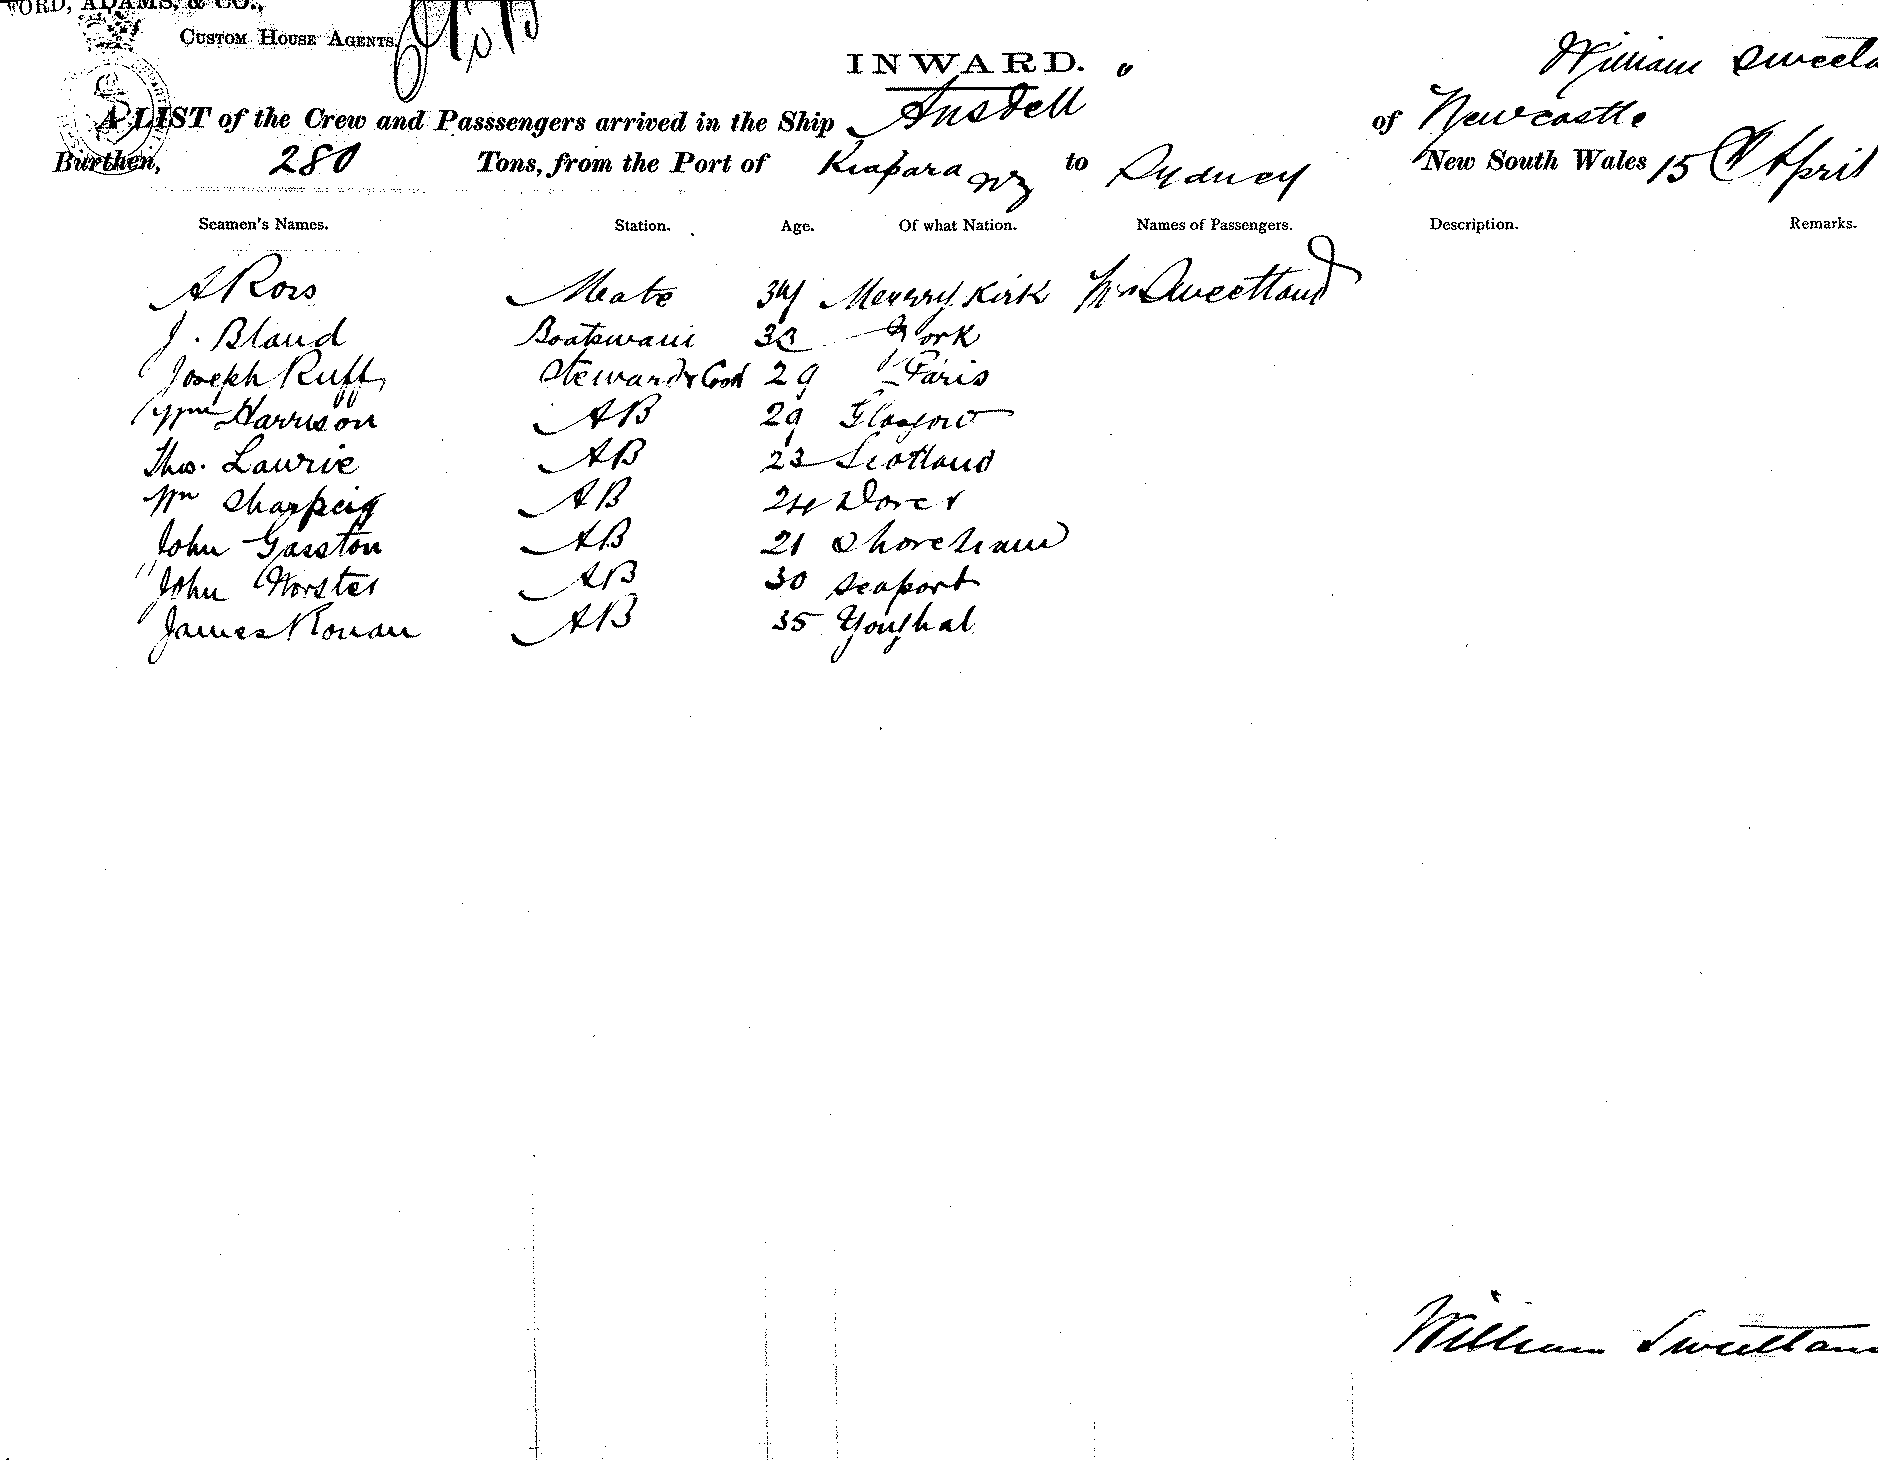 FORD, ADAMS, & CO.,
CUSTOM HOUSE AGENTS.
INWARD.
William Sweetla
A LIST of the Crew and Passsengers arrived in the Ship Ansdell of Newcastle
Burthen, 280 Tons, from the Port of Kiapara NZ to Sydney New South Wales 15 April
Seamen's Names. Station. Age. Of what Nation. Names of Passengers. Description. Remarks.
A Ross Mate Kirk Mrs Sweetland
J. Bland Boatswain 33 York
Joseph Ruff Steward & Cook 29 Paris
Wm Harrison AB 29 Glasgow
Thos. Laurie AB 23 Scotland
Wm AB 24 Dover
John Gasston AB 21 Shoreham
John Worster AB 30 seaport
James Ronan AB 35 Youghal
William Sweetlan